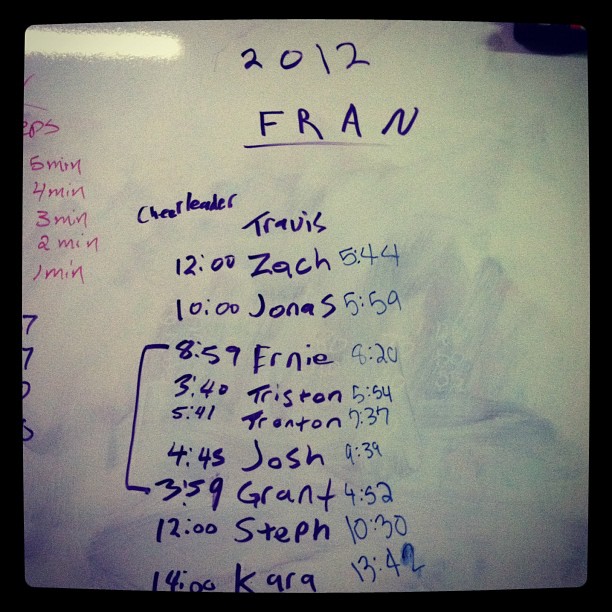 2012
FRAN
eps
5min
4min
3min
2min
1min
7
7
Cheerleader Travis
12:00 Zach 5:44
10:00 Jonas 5:59
8:59 Ernie 8:20
3:40 Triston 5:54
5:41 Tronton 7:37
4:45 Josh 9:39
3:59 Grant 4:52
12:00 Steph 10:30
14:00 Kara 13:42